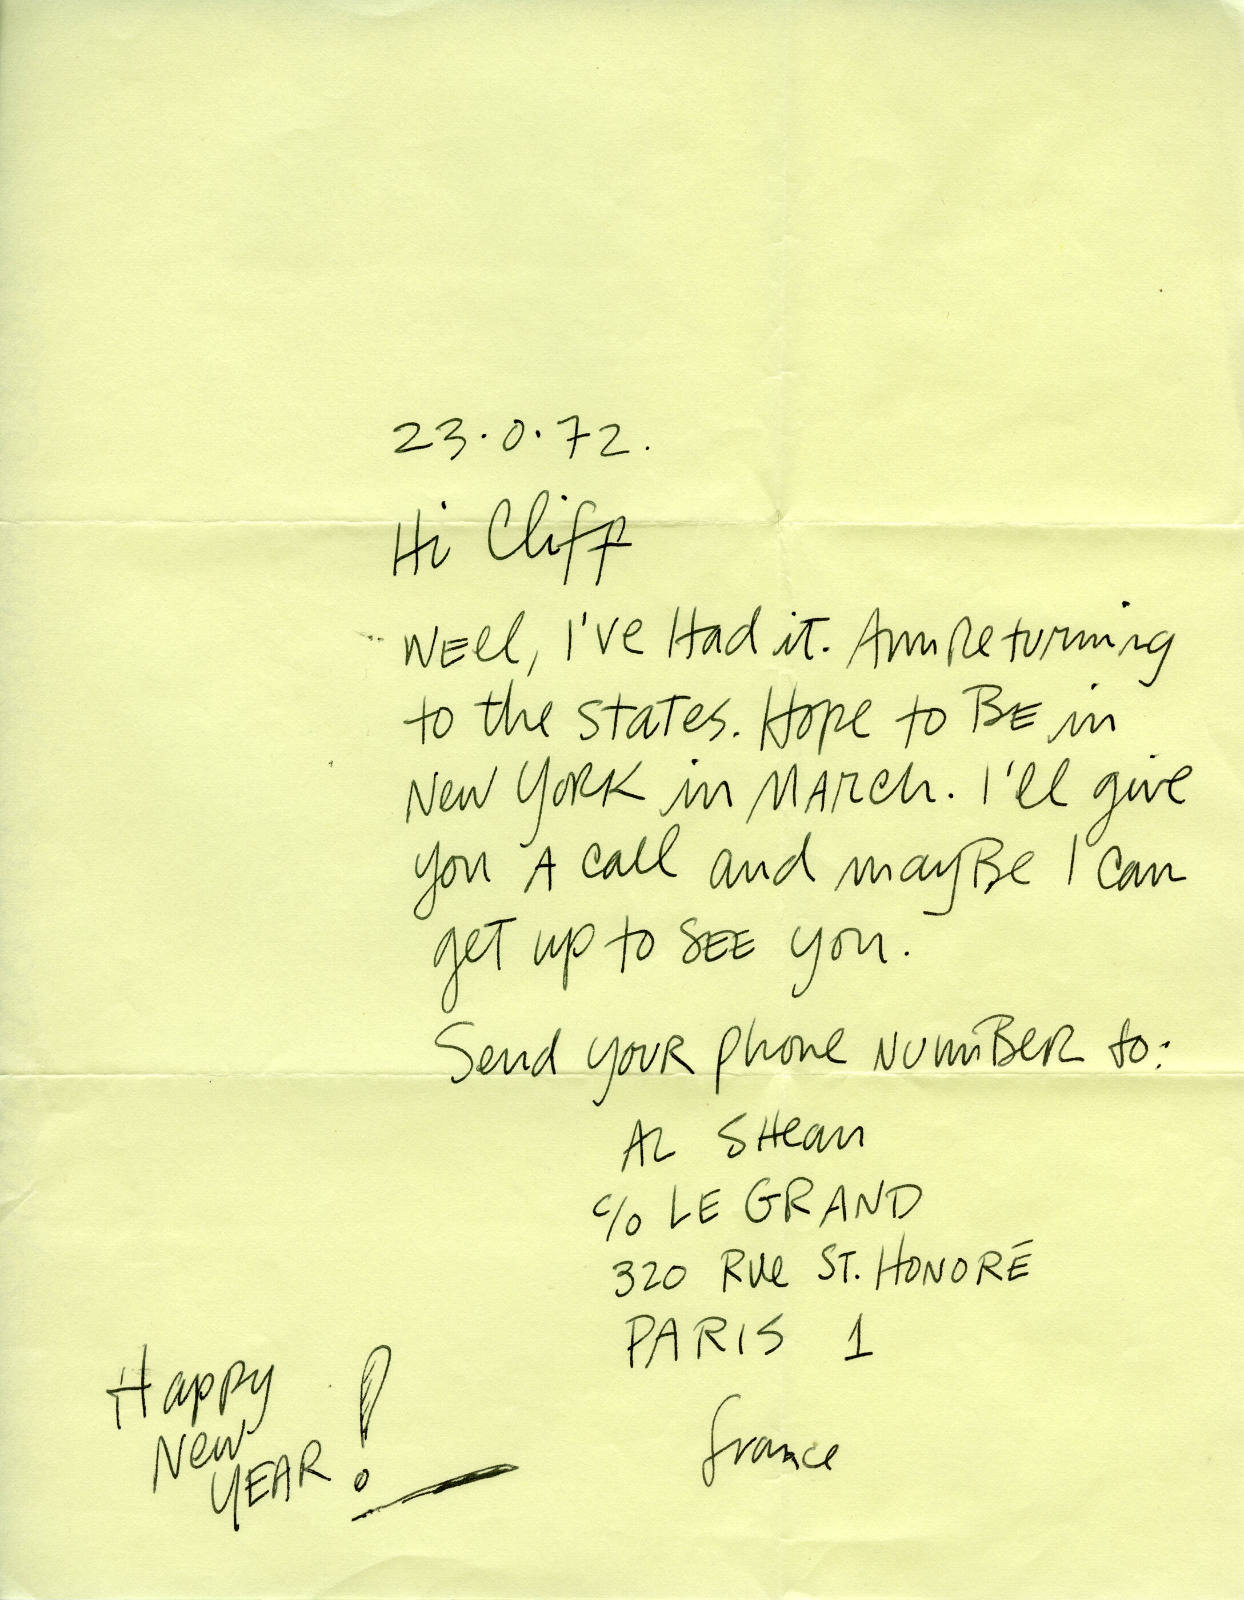 23.0.72.
Hi Cliff
Well, I've Had it. Am Returning
to the States. Hope to BE in
New York in March. I'll give
you A call and mayBe I can
get up to SEE you.
Send your phone NumBeR to:
AL SHean
c/o LE GRAND
320 Rue ST. HONORÉ
PARIS 1
france
Happy
New
YEAR!